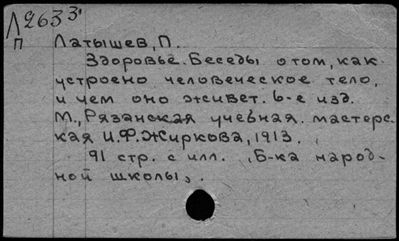 Л2633
П
Латышев, П.
Здоровье. Беседы о том, как
устроено человеческое тело,
и чем оно живет. 6-е изд.
М., Рязанская учебная. мастерс-
кая И.Ф. Жиркова, 1913.
91 стр. с илл. (Б-ка народ-
ной школы).